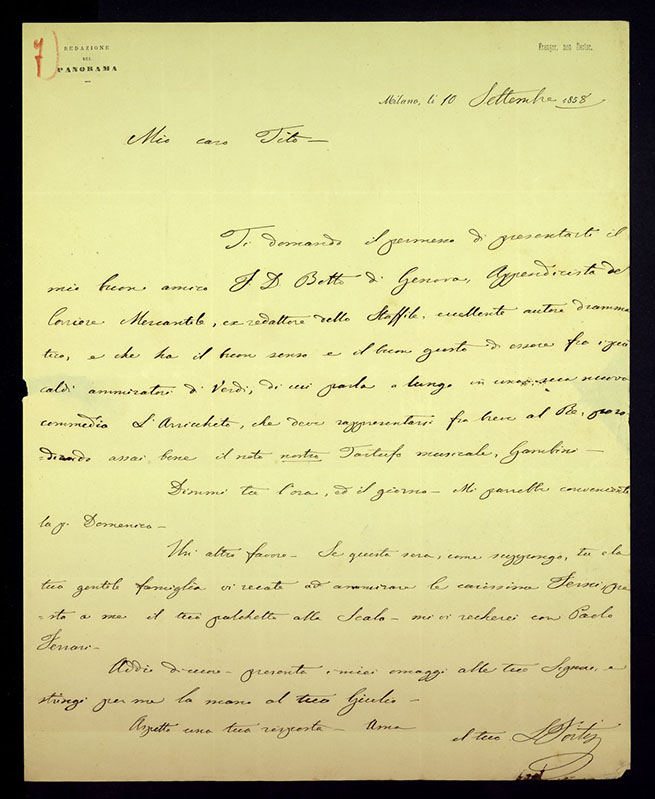 7
REDAZIONE
DEL
PANORAMA
Frangar, non flectar.
Milano, li 10 Settembre 1858
Mio caro Tito —
Ti domando il permesso di presentarti il
mio buon amico J. D. Botto di Genova, Appendicista del
Corriere Mercantile, ex redattore dello Staffile, eccellente autore dramma
tico, e che ha il buon senso e il buon gusto di essere fra i più
caldi ammiratori di Verdi, di cui parla a lungo in una sua nuova
commedia L'Arricchito, che deve rappresentarsi fra breve al Re, paro
diando assai bene il noto nostro Tartufo musicale, Gambini —
Dimmi tu l'ora, ed il giorno — Mi parrebbe conveniente
la p. Domenica —
Un altro favore — Se questa sera, come suppongo, tu e la
tua gentile famiglia vi recate ad ammirare le carissime Ferni, pre
=sta a me il tuo palchetto alla Scala — mi vi recherei con Paolo
Ferrari —
Addio di cuore — presenta i miei omaggi alle tue Signore, e
stringi per me la mano al tuo Giulio —
Aspetto una tua risposta — Ama
il tuo LFortis